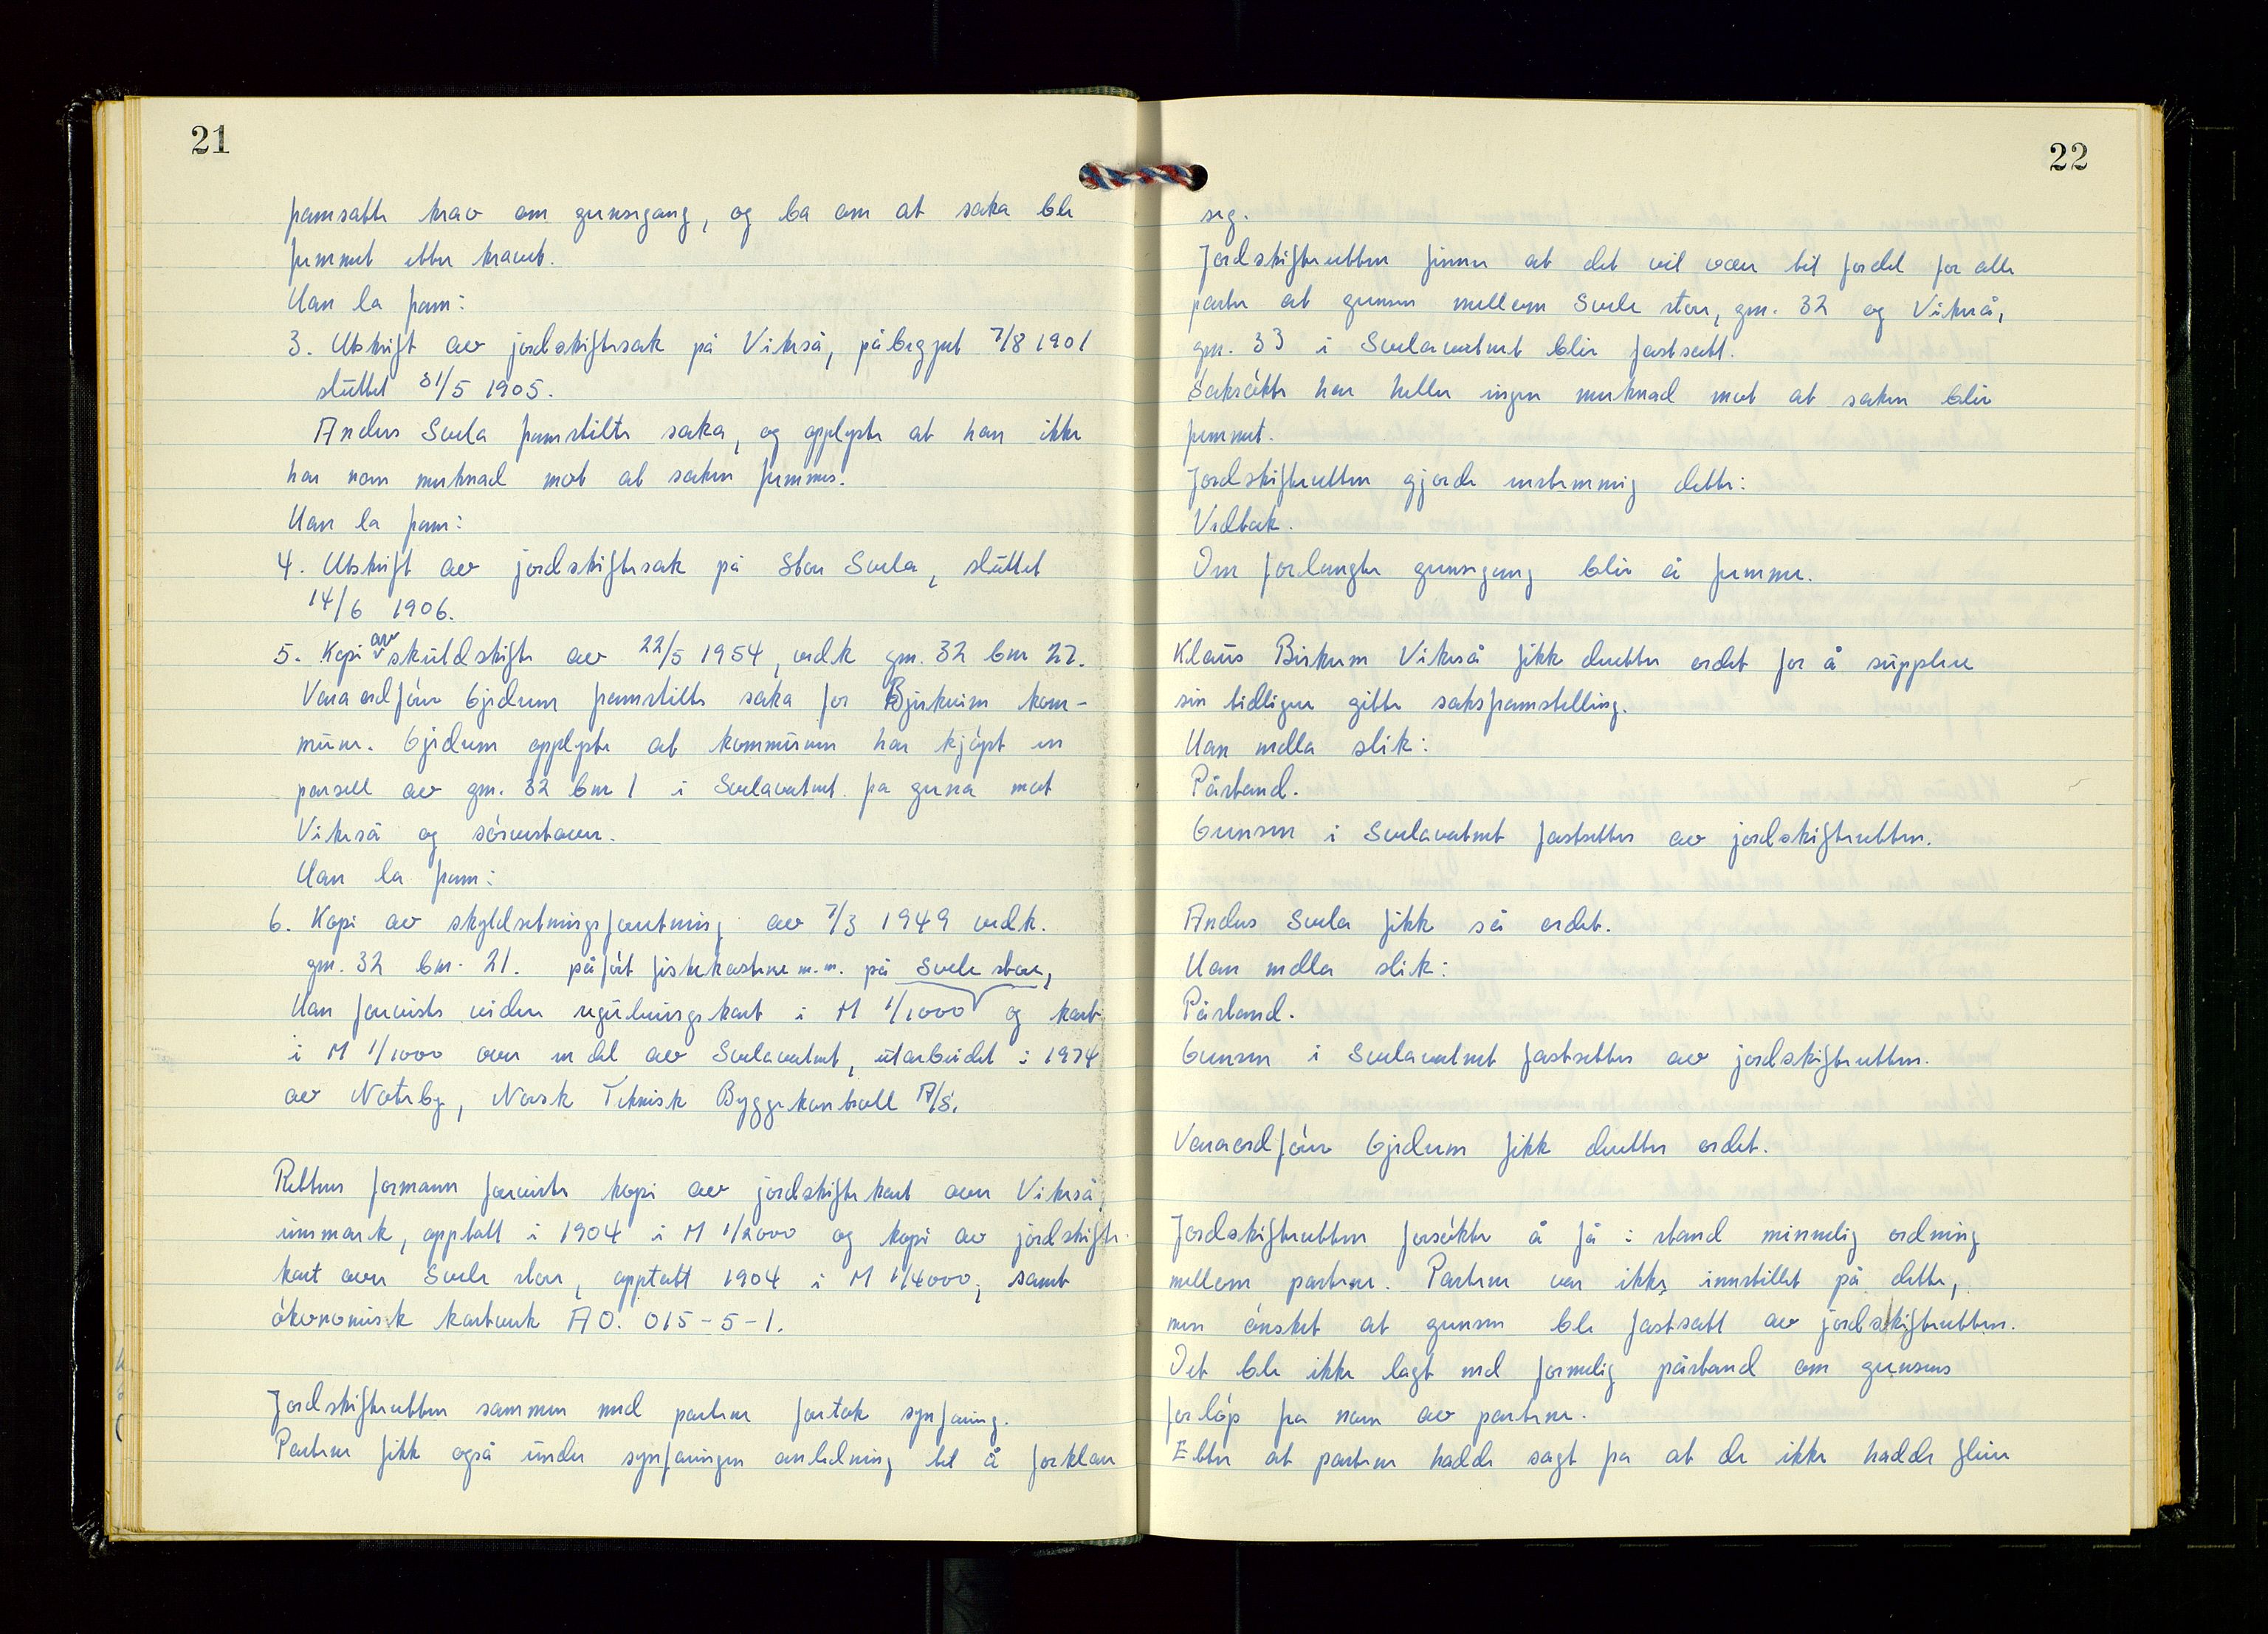 21
framsatte krav om grensegang, og ba om at saka ble
fremmet etter kravet.
Han la fram:
3. Utskrift av jordskiftesak på Vikeså, påbegynt 7/8 1901
sluttet 31/5 1905.
Anders Svela framstilte saka, og opplyste at han ikke
har noen merknad mot at saken fremmes.
Han la fram:
4. Utskrift av jordskiftesak på Store Svela, sluttet
14/6 1906.
5. Kopi av skuldskifte av 22/5 1954, vedk gnr. 32 bnr 27.
Varaordfører Gjedrem framstilte saka for Bjerkreim kom-
mune. Gjedrem opplyste at kommunen har kjøpt en
parsell av gnr. 32 bnr 1 i Svelavatnet fra grensa mot
Vikeså og sørøstover.
Han la fram:
6. Kopi av skyldsetningsforretning av 7/3 1949 vedk.
gnr. 32 bnr. 21. påført fiskekastene m.m. på Svele store,
Han foreviste videre reguleringskart i M 1/1000 og kart
i M 1/1000 over en del av Svelavatnet, utarbeidet i 1974
av Noteby, Norsk Teknisk Byggekontroll A/S.
Rettens formann foreviste kopi av jordskiftekart over Vikeså,
innmark, opptatt i 1904 i M 1/2000 og kopi av jordskifte-
kart over Svele store, opptatt 1904 i M 1/4000, samt
økonomisk kartverk AO. 015-5-1.
Jordskifteretten sammen med partene foretok synfaring.
Partene fikk også under synfaringen anledning til å forklare
22
seg.
Jordskifteretten finner at det vil være til fordel for alle
parter at grensen mellom Svele store, gnr. 32 og Vikeså,
gnr. 33 i Svelavatnet blir fastsatt.
Saksøkte har heller ingen merknad mot at saken blir
fremmet.
Jordskifteretten gjorde enstemmig dette:
Vedtak.
Den forlangte grensegang blir å fremme.
Klaus Birkrem Vikeså fikk deretter ordet for å supplere
sin tidligere gitte saksframstelling.
Han nedla slik:
Påstand.
Grensen i Svelavatnet fastsettes av jordskifteretten.
Anders Svela fikk så ordet.
Han nedla slik:
Påstand.
Grensen i Svelavatnet fastsettes av jordskifteretten.
Varaordfører Gjedrem fikk deretter ordet.
Jordskifteretten forsøkte å få i stand minnelig ordning
mellom partene. Partene var ikke innstillet på dette,
men ønsket at grensen ble fastsatt av jordskifteretten.
Det ble ikke lagt ned formelig påstand om grensens
forløp fra noen av partene.
Etter at partene hadde sagt fra at de ikke hadde flere